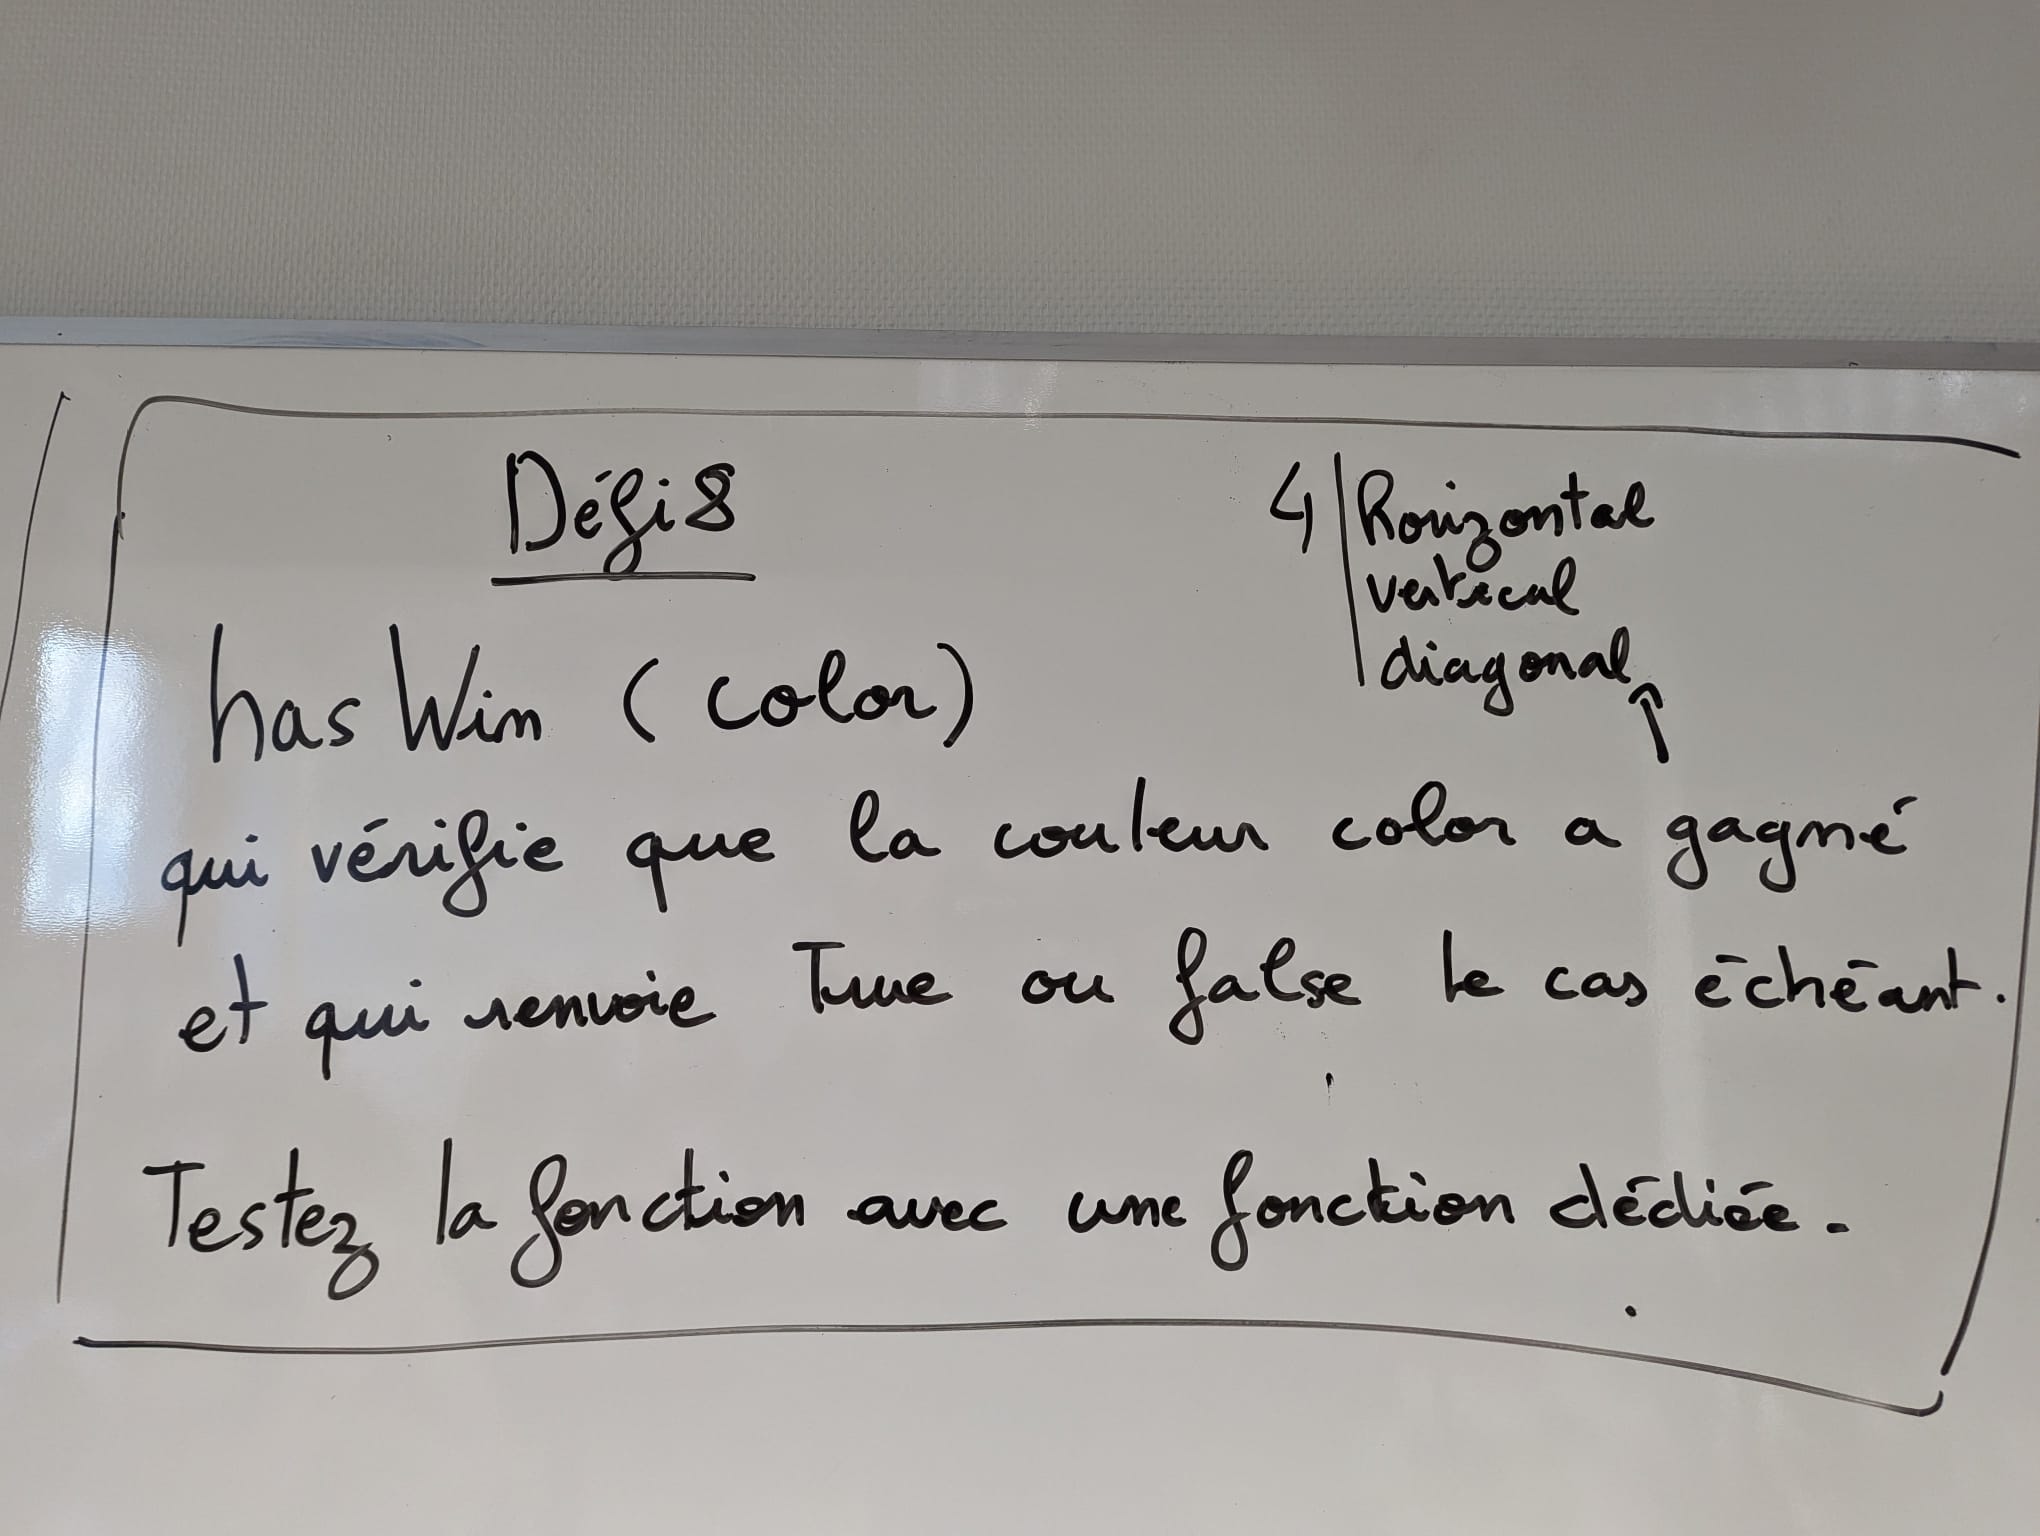 Défi 8
4 | horizontal
vertical
diagonal
hasWin (color)
qui vérifie que la couleur color a gagné
et qui renvoie True ou false le cas échéant.
Testez la fonction avec une fonction dédiée.